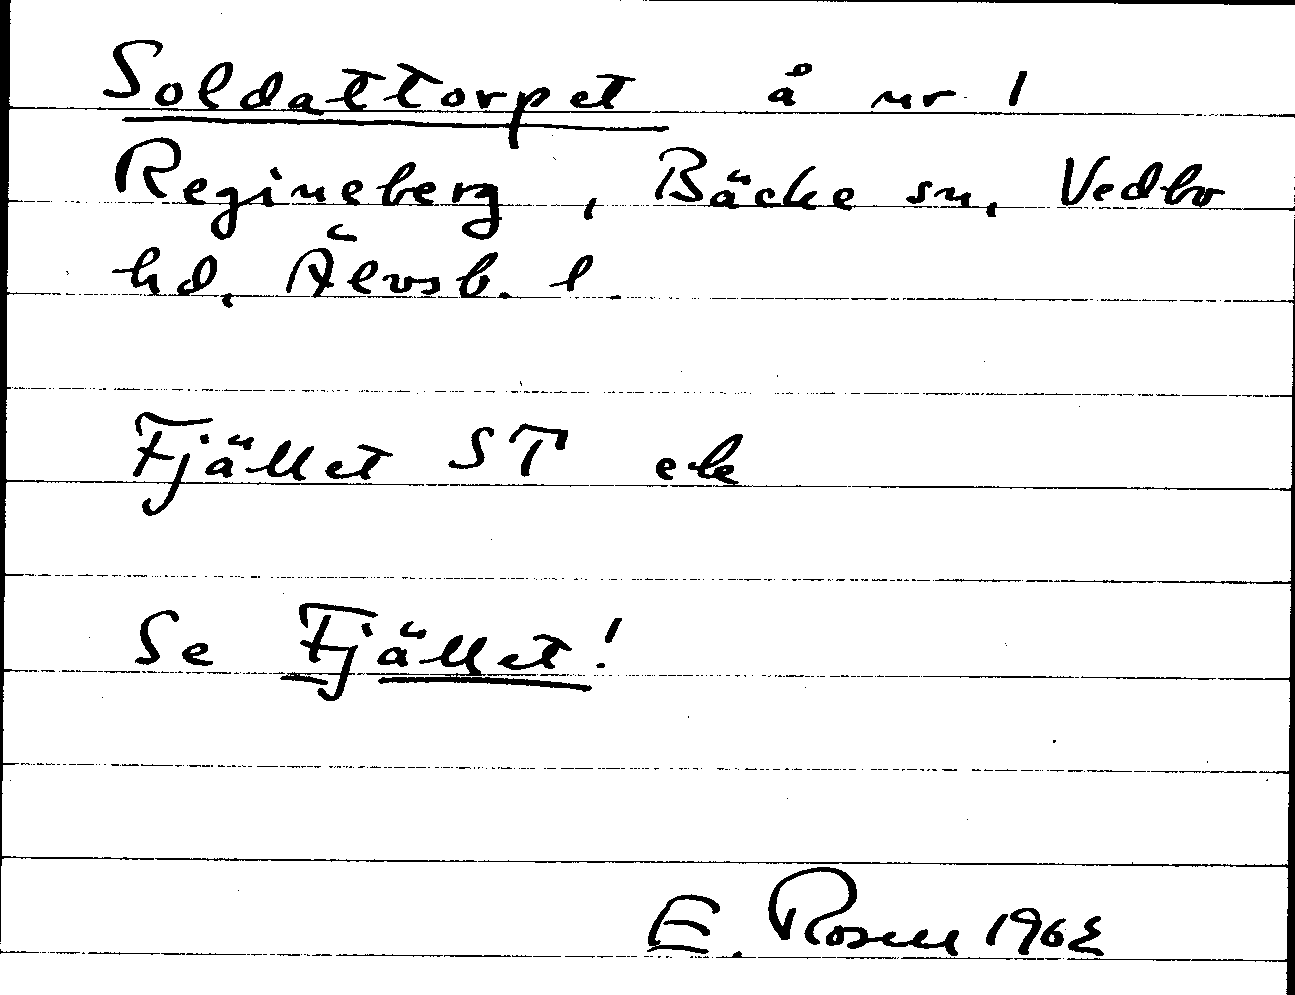 Soldattorpet å nr 1
Regineberg, Bäcke sn, Vedbo
hd, Älvsb. l.
Fjället ST ek
Se Fjället!
E. Rosell 1962